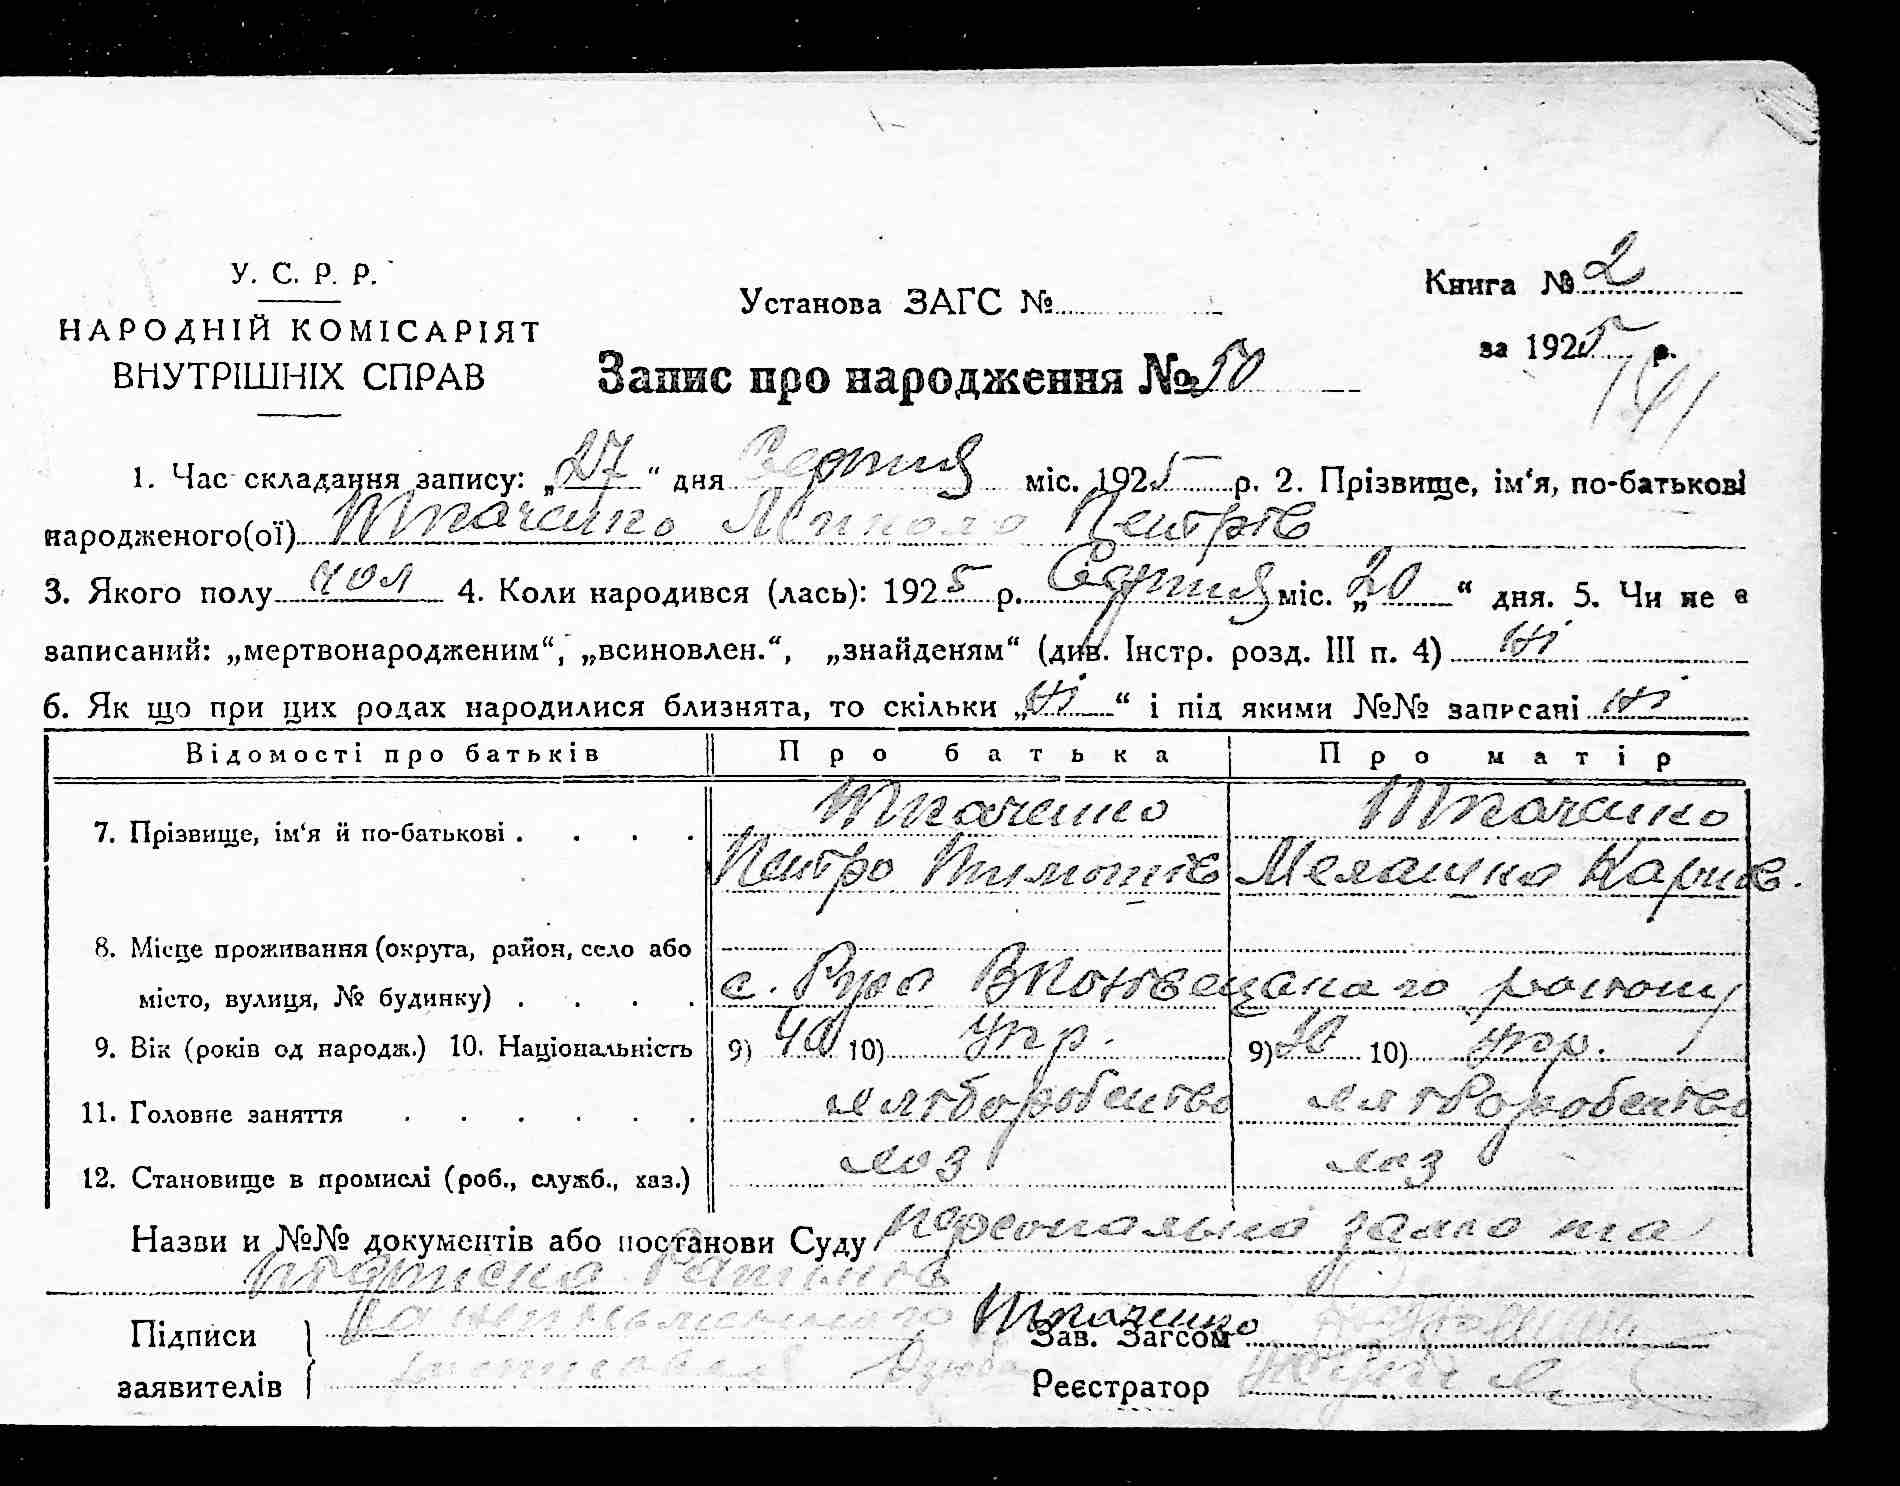 У. С. Р. Р.
НАРОДНІЙ КОМІСАРІЯТ
ВНУТРІШНІХ СПРАВ
Установа ЗАГС №
Книга № 2
за 1925 р.
141
Запис про народження № 50
1. Час складання запису: „27“ дня Серпня міс. 1925 р. 2. Прізвище, ім‘я, по-батькові
народженого(ої) Ткаченко Микола Петрів
3. Якого полу чол 4. Коли народився (лась): 1925 р. Серпня міс. „20“ дня. 5. Чи не є
записаний: „мертвонародженим“, „всиновлен.“, „знайденям“ (див. Інстр. розд. III п. 4) ні
6. Як що при цих родах народилися близнята, то скільки „ні“ і під якими №№ записані ні
Відомості про батьків Про батька Про матір
7. Прізвище, ім‘я й по-батькові Ткаченко Ткаченко
Петро Тимошів Мелашка Карпів.
8. Місце проживання (округа, район, село або
місто, вулиця, № будинку) с. Руда району
9. Вік (років од народж.) 10. Національність 9) 40 10) укр. 9) 30 10) укр.
11. Головне заняття хліборобство хліборобство
12. Становище в промислі (роб., служб., хаз.) хаз хаз
Назви и №№ документів або постанови Суду персональна заява та
Підписи Ткаченко Зав. Загсом
заявителів Реєстратор